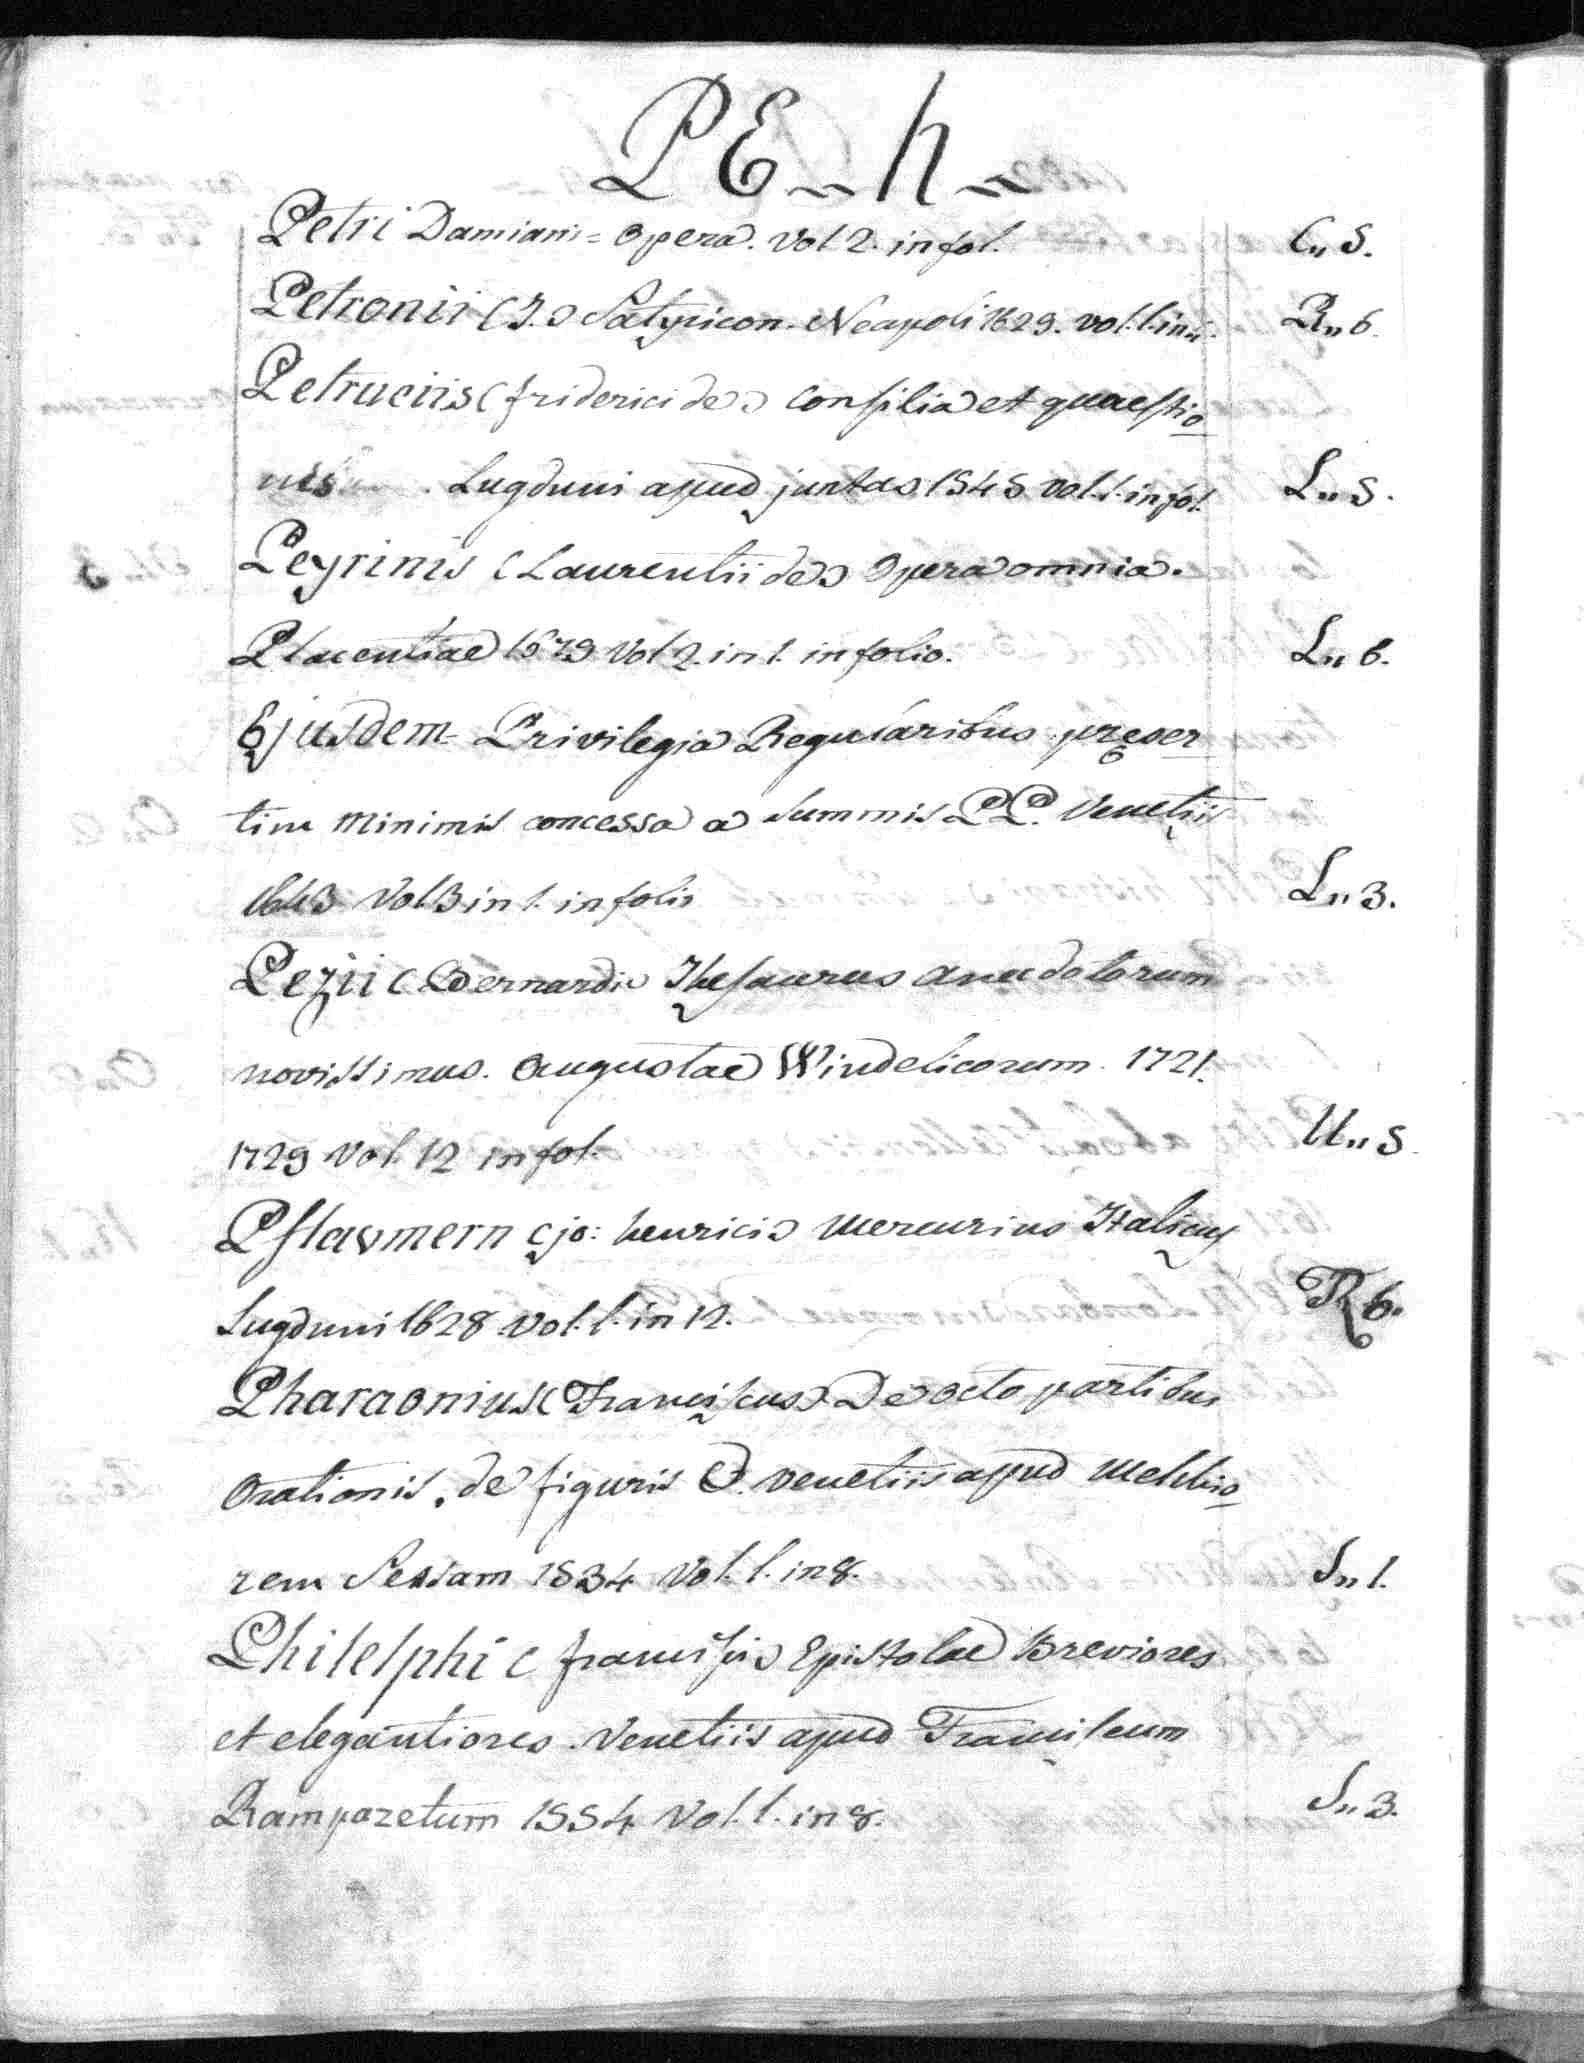 PE h
Petri Damiani = Opera. Vol 2. in fol. C,, 5.
Petronii (T.) Satyricon. Neapoli 1629. vol. 1. in 4. R,, 6.
Petruciis (friderici de) Consilia et quaestio
nes Lugduni apud juntas 1545 vol. 1. in fol. L,, 5.
Peyrinis (Laurentii de) Opera omnia.
Placentiae 1679 Vol 2. in 1. in folio. L,, 6.
Ejusdem - Privilegia Regularibus pręser
tim Minimis concessa a Summis PP. Venetiis
1643 Vol 3 in 1. in folio L,, 3.
Pezii (Bernardi) Thesaurus anecdotorum
novissimus. Augustae Windelicorum. 1721.
1729 Vol. 12 in fol. U,, 5
Pflavmern (jo: henrici) Mercurius Italicus
Lugduni 1628 vol. 1. in 12. R 6.
Pharaonius (Franciscus) De octo partibus
Orationis, de figuris &. Venetiis apud Melchio
rem Sessam 1534 Vol. 1. in 8. S,, 1.
Philelphi (francisci) Epistolae Breviores
et elegantiores. Venetiis apud Franciscum
Rampazetum 1554 Vol. 1. in 8. S,, 3.